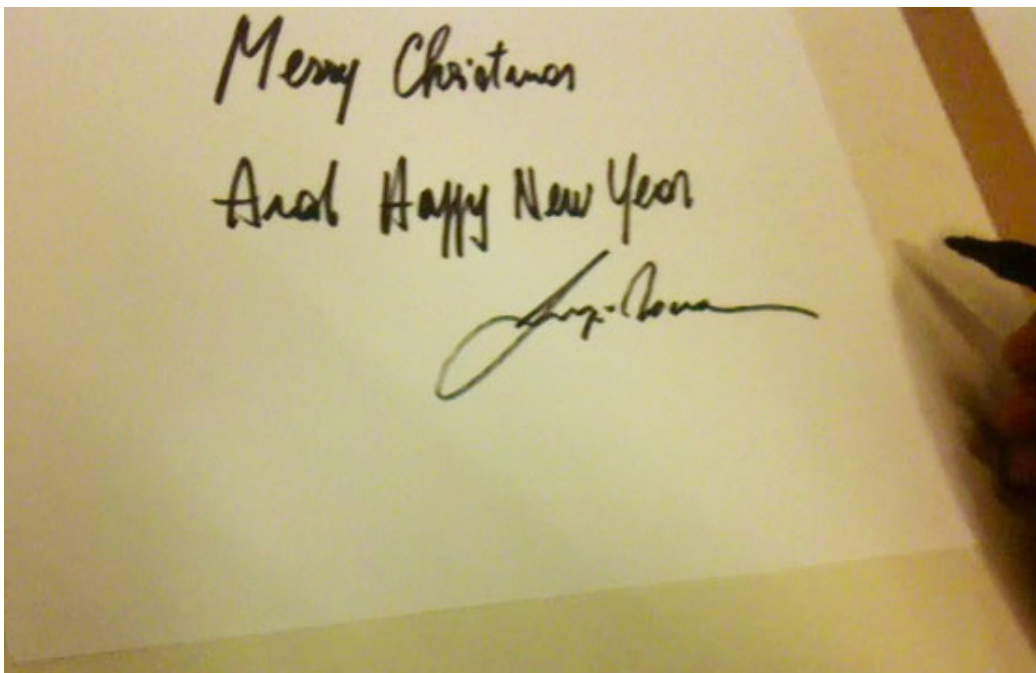 Merry Christmas
And Happy New Year